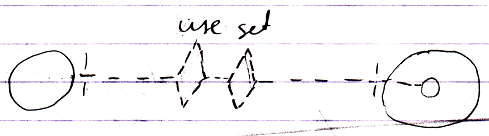 use set